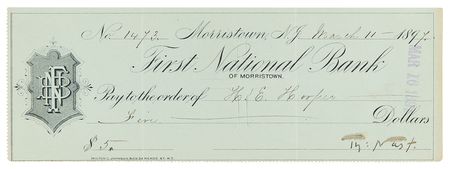 No. 1473. Morristown, N.J. March 11 - 1897.
First National Bank
OF MORRISTOWN.
Pay to the order of H. E. Hooper
Five Dollars
$5.
Th: Nast.
MAR 20